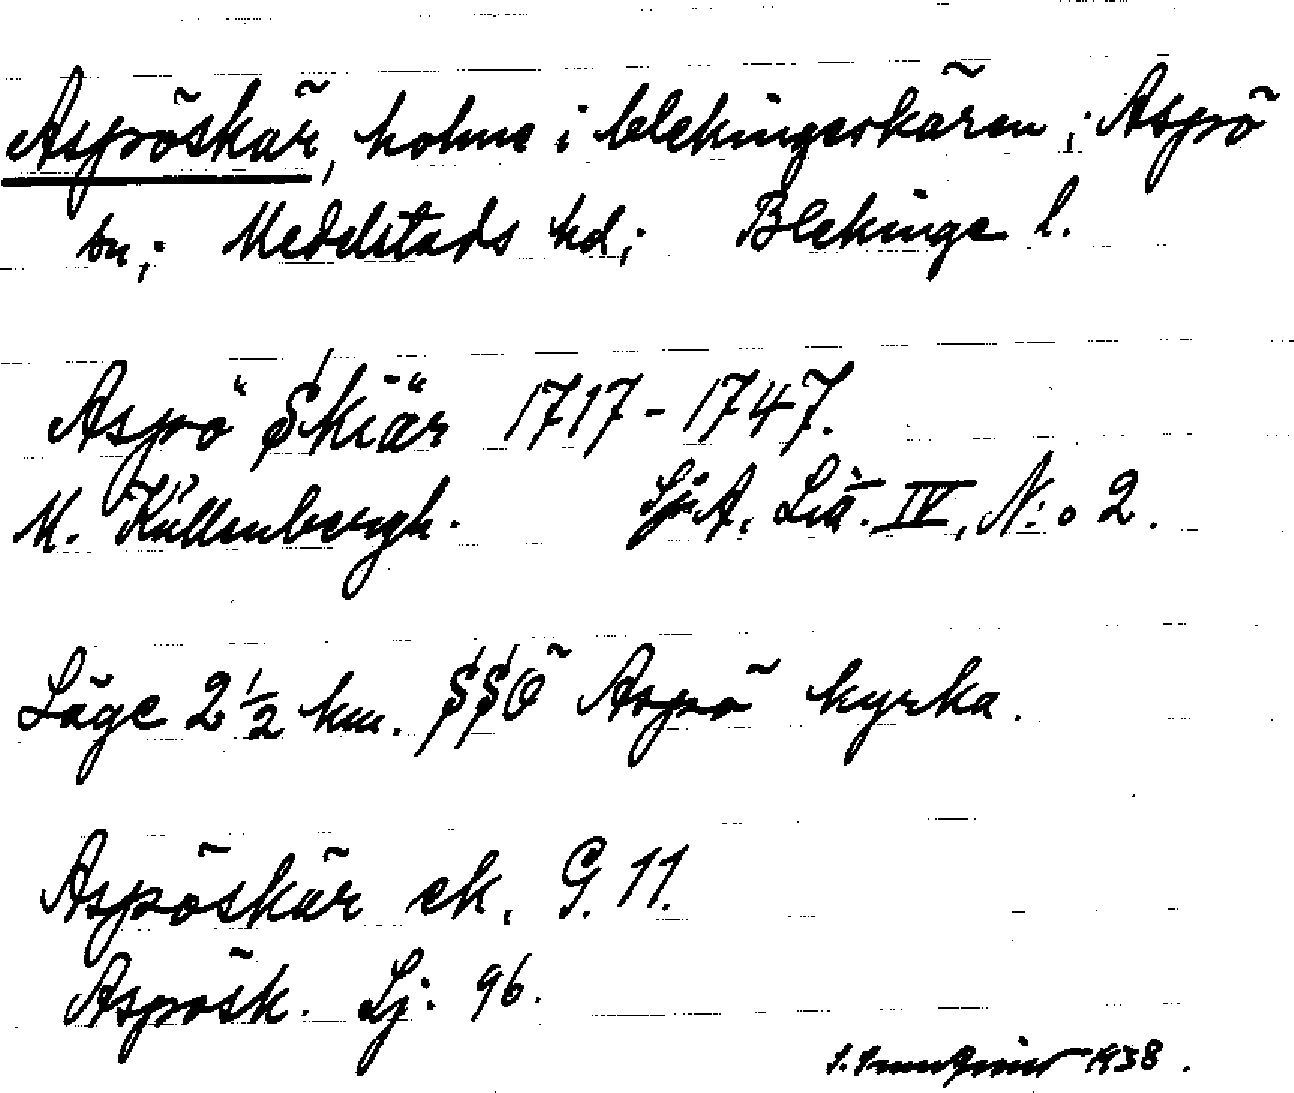 Aspöskär, holme i blekingeskären; Aspö
sn; Medelstads hd; Blekinge l.
Aspö Skiär 1717-1747.
M. Küllenbergh. SjA. Litt. IV, N:o 2.
Läge 2 1/2 km. SSÖ Aspö kyrka.
Aspöskär ek. G. 11.
Aspösk. Sj. 96.
1938.